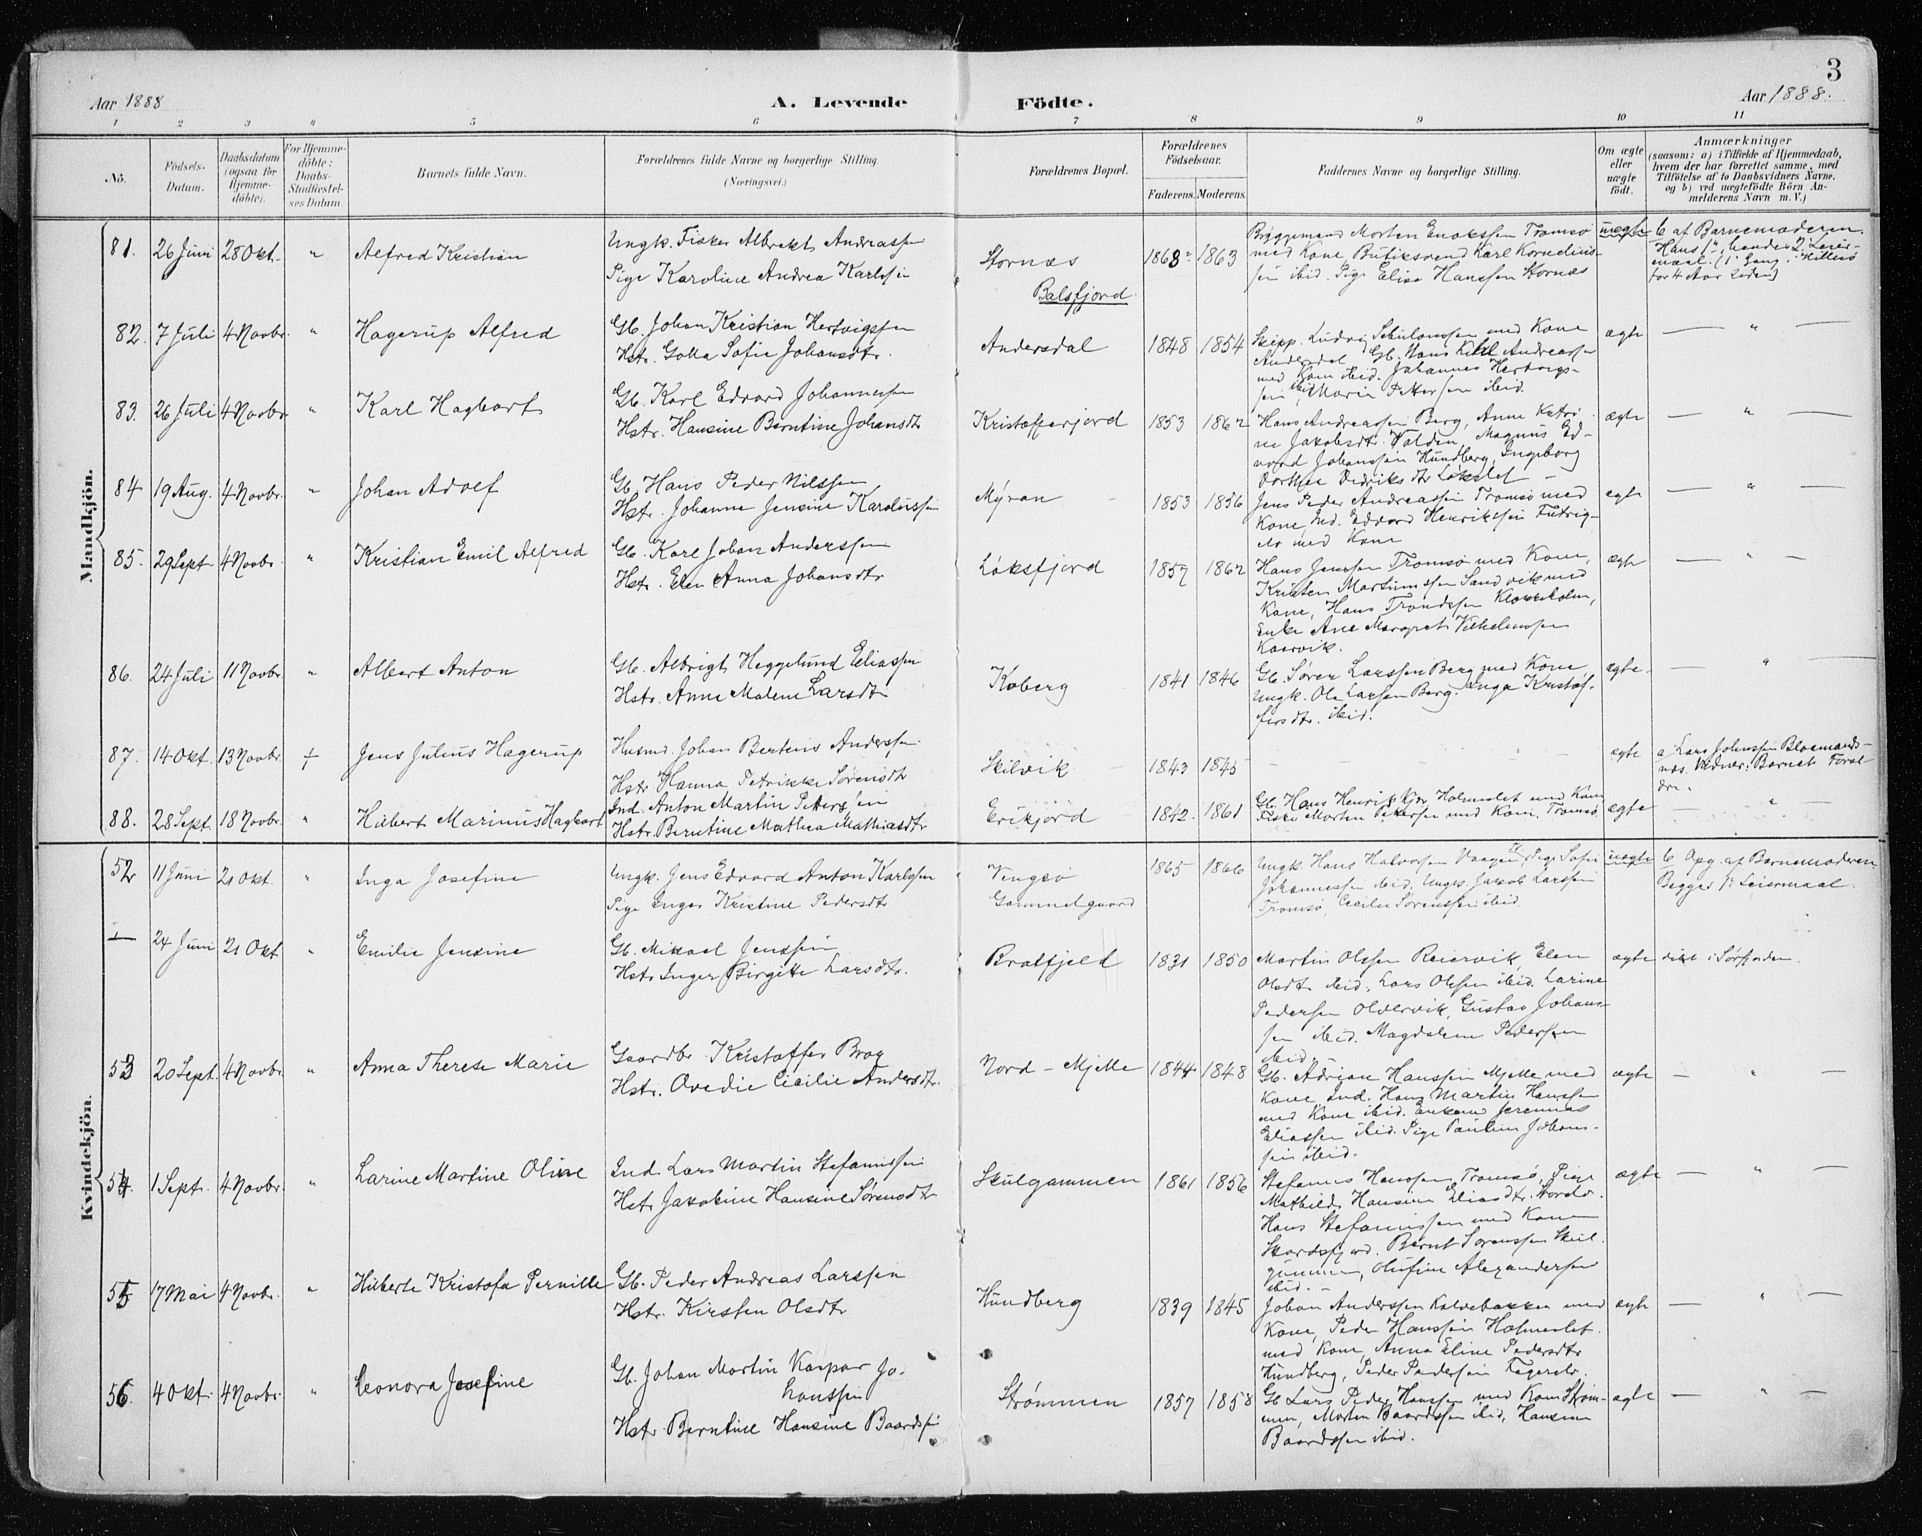 3
Aar 1888
A. Levende Födte.
Aar 1888.
1 2 3 4 5 6 7 8 9 10 11
No.
Födsels-Datum.
Daabsdatum (ogsaa for Hjemme-döbte).
For Hjemme-döbte: Daabs-Stadfæstel-ses Datum.
Barnets fulde Navn.
Forældrenes fulde Navne og borgerlige Stilling.
(Næringsvei.)
Forældrenes Bopæl.
Forældrenes Födselsaar.
Faderens. Moderens.
Faddernes Navne og borgerlige Stilling.
Om ægte eller uægte födt.
Anmærkninger
(saasom: a) i Tilfælde af Hjemmedaab,
hvem der har forrettet samme, med
Tilföielse af to Daabsvidners Navne.
og b) ved uægtefödte Börn An-
melderens Navn m. V.)
Mandkjön.
81. 26 Juni 28 Okt. " Alfred Kristian
Ungk. Fisker Albrekt Andreassen
Pige Karoline Andrea Karlsen
Stornæs
Balsfjord
1863 1863
Bryggemand Morten Enokssen Tromsø
med Kone, Butiksvend Karl Kornelius-
sen ibid. Pige Elisa Hanssen Stornæs
uægte
b af Barnemoderen.
for 4 Aar siden)
82. 7 Juli 4 Novbr. " Hagerup Alfred
Gb. Johan Kristian Hertvigssen
Hstr. Golla Sofie Johansdtr.
Andersdal 1848 1854
Skipp. Ludvig med Kone
Andersdal Gb. Hans Andreassen
med Kone ibid. Johannes Hertvigs-
sen ibid Marie Pettersen ibid.
ægte — " —
83. 26 Juli 4 Novbr. " Karl Hagbart
Gb. Karl Edvard Johannessen
Hstr. Hansine Berntine Johansdtr
Kristofferjord 1853 1862
Hans Andreassen Berg, Anne Katri-
ne Jakobsdtr. Valden, Magnus Ed-
vard Johanssen Hundberg, Ingeborg
Dorthea Didriksdtr Løkslet —
ægte — " —
84 19 Aug. 4 Novbr. " Johan Adolf
Gb. Hans Peder Nilssen
Hstr. Johanne Jensine Karolussen
Myran 1853 1856
Jens Peder Andreassen Tromsø med
Kone, Ind. Edvard Henrikssen Futrig-
elv med Kone
ægte — " —
85. 29 Sept 4 Novbr. " Kristian Emil Alfred
Gb. Karl Johan Anderssen
Hstr. Elen Anna Johansdtr
Løksfjord 1857 1862
Hans Jenssen Tromsø med Kone,
Kristen Martinussen Sandvik med
Kone, Hans Trondssen
Enke Ane Margret Vilhelmssen
Kaarvik.
ægte — " —
86. 24 Juli 11 Novbr. " Albert Anton
Gb. Albrigt Heggelund Eliassen
Hstr. Anne Malene Larsdtr
Kaberg 1841 1846
Gb. Søren Larssen Berg med Kone
Ungk. Ole Larsen Berg. Inga Kristof-
fersdtr. ibid.
ægte. — " —
87. 14 Okt. 13 Novbr + Jens Julius Hagerup
Husmd. Johan Bertius Anderssen.
Hstr Hanna Petrikke Sørensdtr
Skilvik 1843 1845
ægte
a Lars Johnssen Blaamands-
næs. Vidner: Barnets Foræl-
dre.
88. 28 Sept. 18 Novbr. " Hilbert Marinius Hagbart
Ind. Anton Martin Petersen
Hstr. Berntine Mathea Mathiasdtr
Erikjord 1842. 1861
Gb. Hans Henrik Holmeslet med Kone
Fisker Morten Pedersen med Kone, Tromsø
ægte — " —
Kvindekjön.
52 11 Juni 21 Okt. " Inga Josefine
Ungk. Jens Edvard Anton Karlssen
Pige Inger Kristine Pedersdtr
Vengsø
Gammelgaard
1865 1866
Ungk. Hans Halvorsen Vaagen, Pige Sofie
Johannessen ibid. Ungk. Jakob Larssen
Tromsø, Cecilie Sørenssen ibid.
uægte
b Opg. af Barnemoderen
Begges 1ste Leiermaal.
— 24 Juni 21 Okt " Emilie Jensine
Gb. Mikael Jenssen
Hstr Inger Birgitte Larsdtr.
Bratfjeld 1831 1850
Martin Olssen Reiervik, Elen
Olsdtr ibid, Lars Olssen ibid. Larine
Pedersen Oldervik, Gustav Johans-
sen ibid. Magdalene Pederssen
ibid.
ægte døbt i Sørfjorden.
53 20 Sept. 4 Novbr. " Anna Therese Marie
Gaardbr Kristoffer Brox
Hstr. Ovedie Cicilie Andersdtr.
Nord-Mjelle 1844 1848
Gb. Adrian Hanssen Mjelle med
Kone, Ind. Hans Martin Hanssen
med Kone ibid. Enkem. Jeremias
Eliassen ibid. Pige Pauline Johans-
sen ibid.
ægte — " —
54. 1 Sept. 4 Novbr. " Larine Martine Oline
Ind. Lars Martin Stefanussen
Hstr Jakobine Hansine Sørensdtr
Skulgammen 1861 1856
Stefanus Hanssen Tromsø, Pige
Mathilde Hansine Eliasdtr.
Hans Stefanussen med Kone
Skardsfjord. Bernt Sørenssen Skul-
gammen, Olufine Alexandersen
ibid. —
ægte — " —
55 17 Mai 4 Novbr. " Hilberte Kristofa Pernille
Gb. Peder Andreas Larssen
Hstr. Kirsten Olsdtr
Hundberg 1839 1845
Johan Anderssen Kaldebakken med
Kone, Peder Hanssen Holmeslet
med Kone, Anna Eline Pedersdtr
Hundberg, Peder Pederssen
ægte — " —
56. 4 Okt. 4 Novbr. " Leonora Josefine
Gb. Johan Martin Kaspar Jo-
hanssen
Hstr Berntine Hansine Baardsen
Strømmen 1857 1858
Gb Lars Peder Hanssen med Kone Strøm-
men, Morten Baardssen ibid, Hansine
Baardssen ibid.
ægte — " —